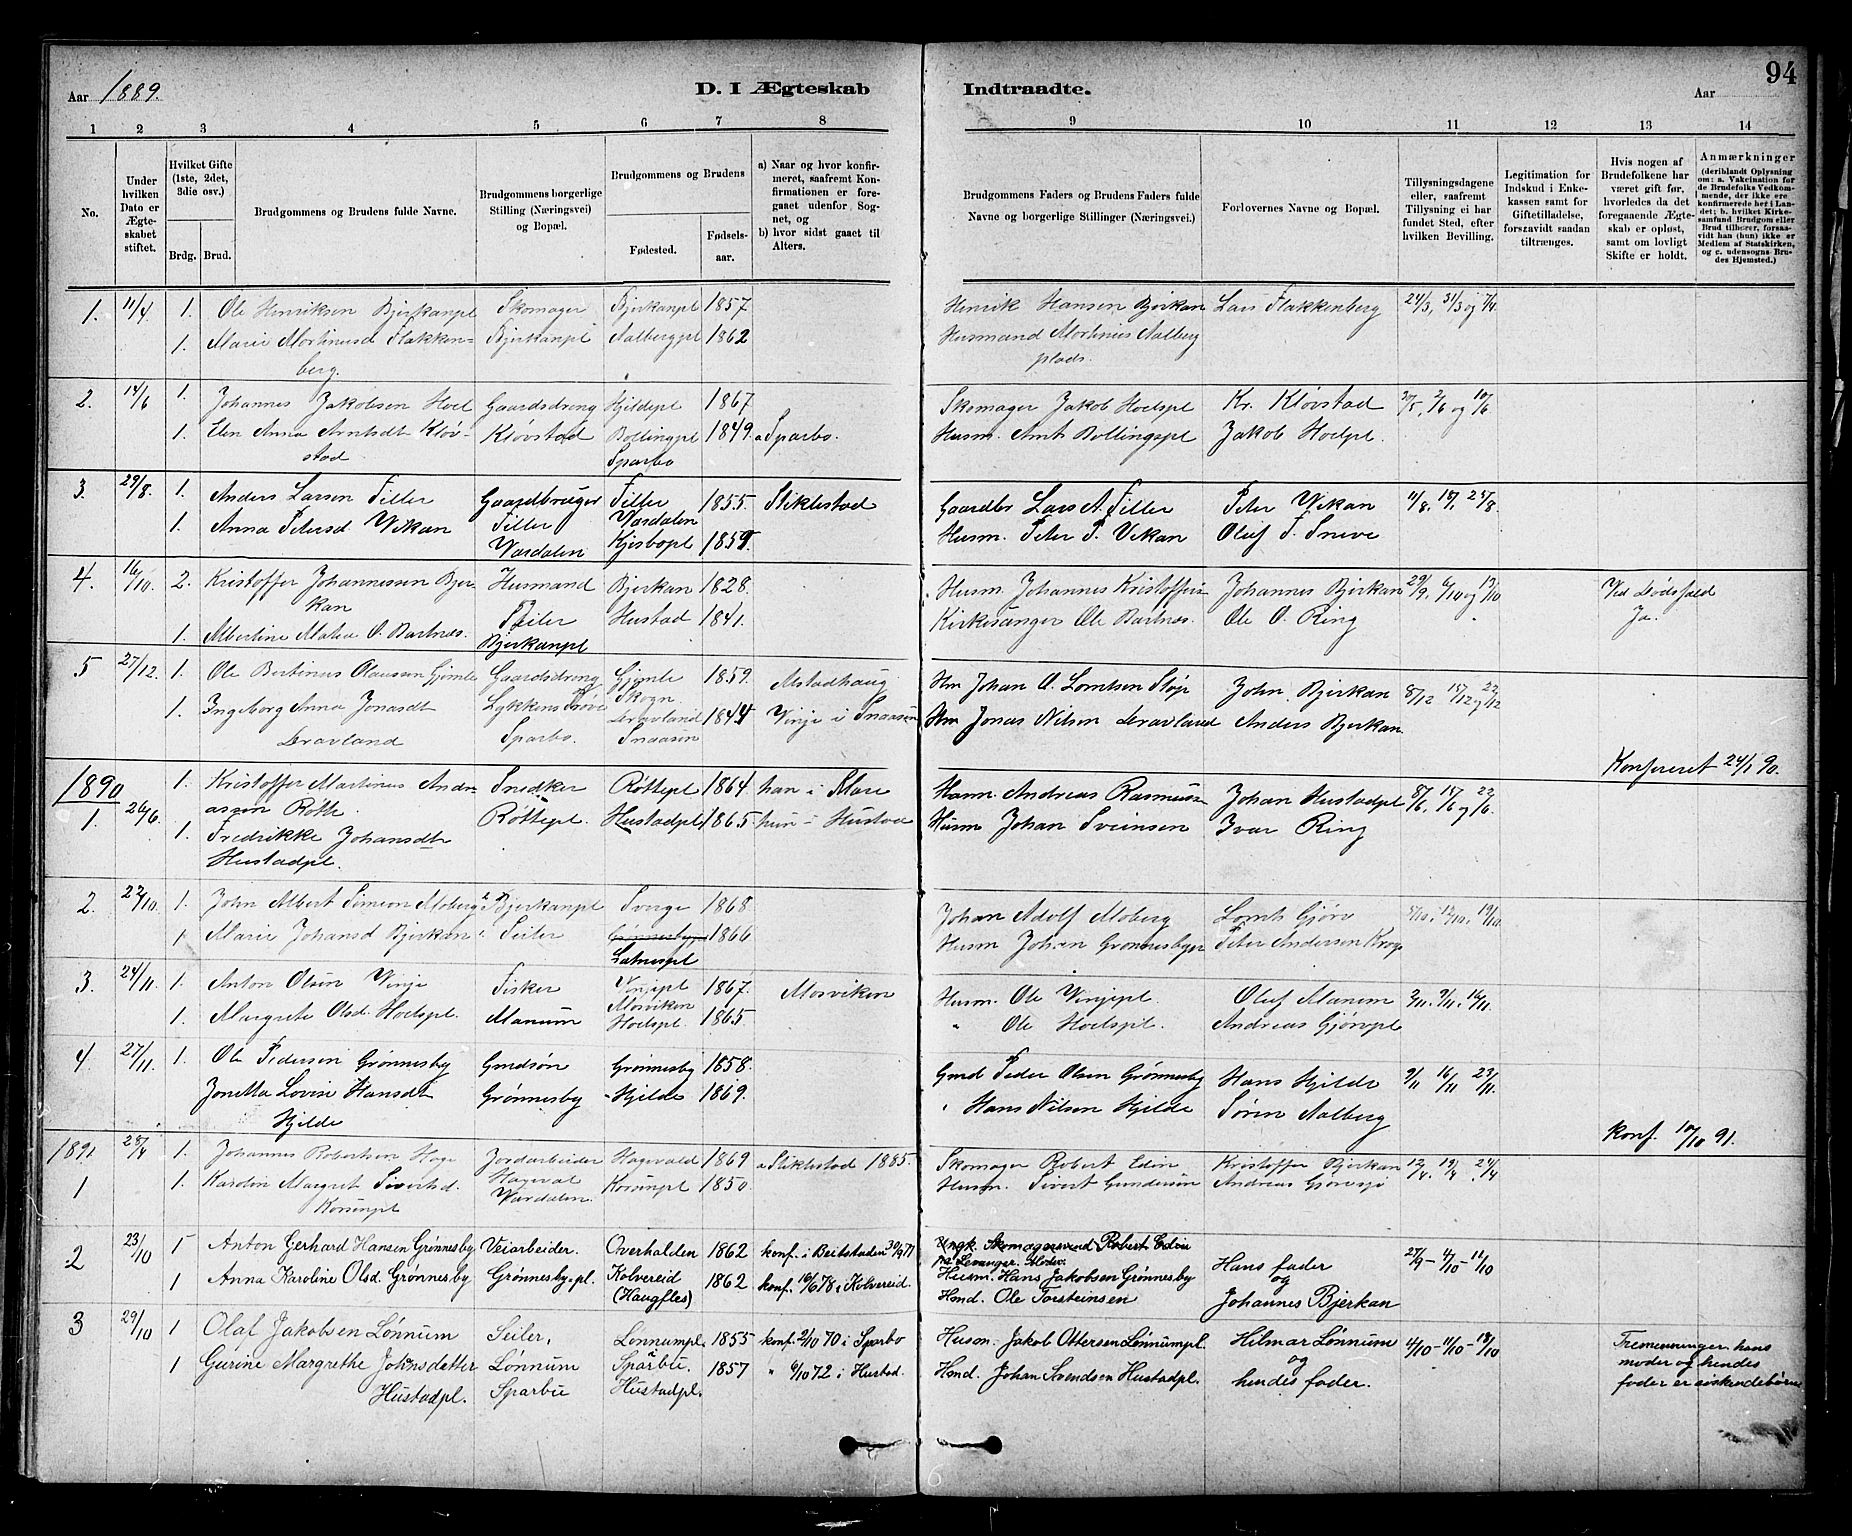 Aar 1889.
D. I Ægteskab Indtraadte.
94
Aar
1 2 3 4 5 6 7 8 9 10 11 12 13 14
No.
Under hvilken Dato er Ægteskabet stiftet.
Hvilket Gifte (1ste, 2det, 3die osv.)
Brdg. Brud.
Brudgommens og Brudens fulde Navne.
Brudgommens borgerlige Stilling (Næringsvei) og Bopæl.
Brudgommens og Brudens
Fødested.
Fødselsaar.
a) Naar og hvor konfirmeret, saafremt Konfirmationen er foregaaet udenfor Sognet, og
b) hvor sidst gaaet til Alters.
Brudgommens Faders og Brudens Faders fulde Navne og borgerlige Stillinger (Næringsvei.)
Forlovernes Navne og Bopæl.
Tillysningsdagene eller, saafremt Tillysning ei har fundet Sted, efter hvilken Bevilling.
Legitimation for Indskud i Enkekassen samt for Giftetilladelse, forsaavidt saadan tiltrænges.
Hvis nogen af Brudefolkene har været gift før, hvorledes da det foregaaende Ægteskab er opløst, samt om lovligt Skifte er holdt.
Anmærkninger (deriblandt Oplysning om: a. Vakcination for de Brudefolks Vedkommende, der ikke ere konfirmerede her i Landet; b. hvilket Kirkesamfund Brudgom eller Brud tilhører, forsaavidt han (hun) ikke er Medlem af Statskirken, og c. udensogns Brudes Hjemsted.)
1. 11/4. 1. Ole Henriksen Bjerkanpl Skomager Bjerkanpl 1857 Henrik Hansen Bjerkan Lars Flakkenberg 24/3, 31/3 og 7/4
1. Marie Mortinusd Flakken- Bjerkanpl Aalbergpl 1862 Husmand Mortinus Aalberg
berg. plads.
2. 14/6 1. Johannes Jakobsen Hoel Gaardsdreng Hjildepl 1867 Skomager Jakob Hoelspl Kr. Kløvstad 20/5, 2/6 og 10/6
1. Elen Anna Arntsdt Kløv- Kløvstad Bollingpl 1849. a Sparbo. Husm. Arnt Bollingspl Jakob Hoelpl.
stad Sparbo
3. 29/8. 1. Anders Larsen Tiller Gaardbruger Tiller 1855. Stiklestad Gaardbr Lars A. Tiller Peter Vikan 11/8, 18/, 25/8
1. Anna Petersd Vikan Tiller Værdalen Husm. Peter P. Vikan Oluf T. Sneve
Værdalen Hjesbopl 1859.
4. 16/10. 2. Kristoffer Johannessen Bjer- Husmand Bjerkan 1828. Husm. Johannes Kristoffers Johannes Bjerkan 29/9, 6/10 og 13/10 Ved Dødsfald
kan Seiler Hustad 1841. Kirkesanger Ole Bartnes. Ole O. Ring Ja.
1. Albertine Matea O. Bartnæs. Bjerkanpl
5 27/12. 1. Ole Bertinus Olaussen Gjømle Gaardsdreng Gjømle 1859. Alstadhaug Hm Johan A. Lomtsen Støp John Bjerkan 8/12 15/12 og 22/12
1. Ingeborg Anna Jonasdt Lykkens Prøve Skogn
Deravland Sparbo. Deravland 1844 Vinje i Snaasen Hm Jonas Nilsen Deravland Anders Bjerkan.
Snaasen
Konfereret 24/1 90.
1890
1. 26/6. 1. Kristoffer Martinus Andr- Snedker Røttepl 1864 han i Mære Husm. Andreas Rasmuss Johan Hustadpl 8/6, 15/6 og 22/6.
assen Røtte. Røttepl. Hustadpl 1865 hun - Hustad Husm Johan Sveinsen Ivar Ring
1. Fredrikke Johansdt
Hustadpl.
2. 22/10. 1. John Albert Simeon Moberg Bjerkanpl Sverge 1868 Johan Adolf Moberg Lornts Gjørv 5/10. 12/10. 19/10.
1. Marie Johansd Bjerkan Seiler Grønnesbypl 1866 Husm Johan Grønnesbypl Peter Andersen Krogs
Salnespl
3. 24/11. 1. Anton Olsen Vinje Fisker Vinjepl 1867. Mosviken Husm. Ole Vinjepl. Oluf Manum 2/11. 9/11. 16/11.
1. Margrete Olsd. Hoelspl. Manum Mosviken
Hoelspl. 1865. " Ole Hoelspl. Andreas Gjørvpl
4. 27/11. 1. Ole Pedersen Grønnesby Gmdsøn Grønnesby 1858. Gmd Peder Olsen Grønnesby Hans Hjilde 9/11 16/11 23/11.
Jonetta Lovise Hansdt Grønnesby Hjilde 1869. " Hans Nilsen Hjilde Søren Aalberg
Hjilde
konf. 10/10 91.
1891. 28/4 1. Johannes Robertsen Hage Jordarbeider Hagevald 1869 a Stiklestad 1885. Skomager Robert Edin Kristoffer Bjerkan 12/4. 19/4. 24/4
1 1. Karolin Margret Sivertsd. Hageval Korsenpl 1850. Husm. Sivert Gundersen Andreas Gjørvspl
Korsenpl Værdalen.
2 23/10 1 Anton Gerhard Hansen Grønnesby Veiarbeider. Overhalden 1862 konf. i Beitstaden 30/9 77 Ungk. Skomagersvend Robert Edin
paa Levanger. Moder. 27/9 - 4/10 - 11/10
1 Anna Karoline Olsd. Grønnesby Grønnesby-pl. Kolvereid 1862 konf. 16/6 78 i Kolvereid. Husm. Hans Jakobsen Grønnesby Hans fader
og
(Haugfles) Hmd. Ole Torsteinsen Johannes Bjerkan
3 29/10 1 Olaf Jakobsen Lønnum Seiler. Lønnumpl. 1855 konf. 2/10 70 i Sparbo Husm. Jakob Ottersen Lønnumpl. Hilmar Lønnum 4/10 - 11/10 - 18/10 Tremenninger. hans
moder og hendes
1 Gurine Margrethe Johnsdatter Lønnum Sparbu. 1857 " 6/10 72 i Hustad. Hmd. Johan Svendsen Hustadpl. og
hendes fader. fader er søskendebørn
Hustadpl. Sparbu Hustadpl.